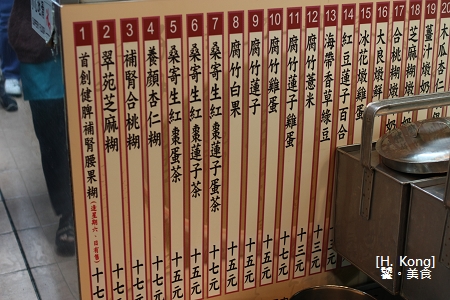 1 首創健脾補腎腰果糊(逢星期六、日有售) 十七
2 翠苑芝麻糊 十七
3 補腎合桃糊 十七
4 養顏杏仁糊 十七
5 桑寄生紅棗蛋茶 十五元
6 桑寄生紅棗蓮子茶 十五元
7 桑寄生紅棗蓮子蛋茶 十七
8 腐竹白果 十五元
9 腐竹蓮子 十五元
10 腐竹雞蛋 十五元
11 腐竹蓮子雞蛋 十七元
12 腐竹薏米 十三元
13 海帶香草綠豆 十三元
14 紅豆蓮子百合
15 冰花燉蛋
16 大良燉鮮奶
17 合桃燉奶
18 杏汁燉奶
19 薑汁燉奶
20 木瓜杏仁
[H. Kong]
饕。美食